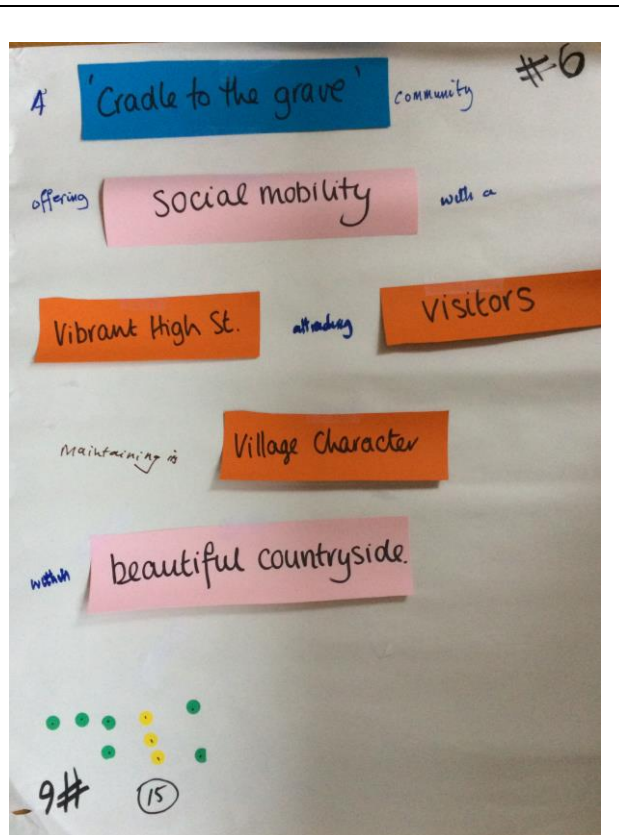 #6
A 'Cradle to the grave' community
offering Social mobility with a
Vibrant High St. attracting Visitors
Maintaining is Village Character
within beautiful countryside.
9# 15